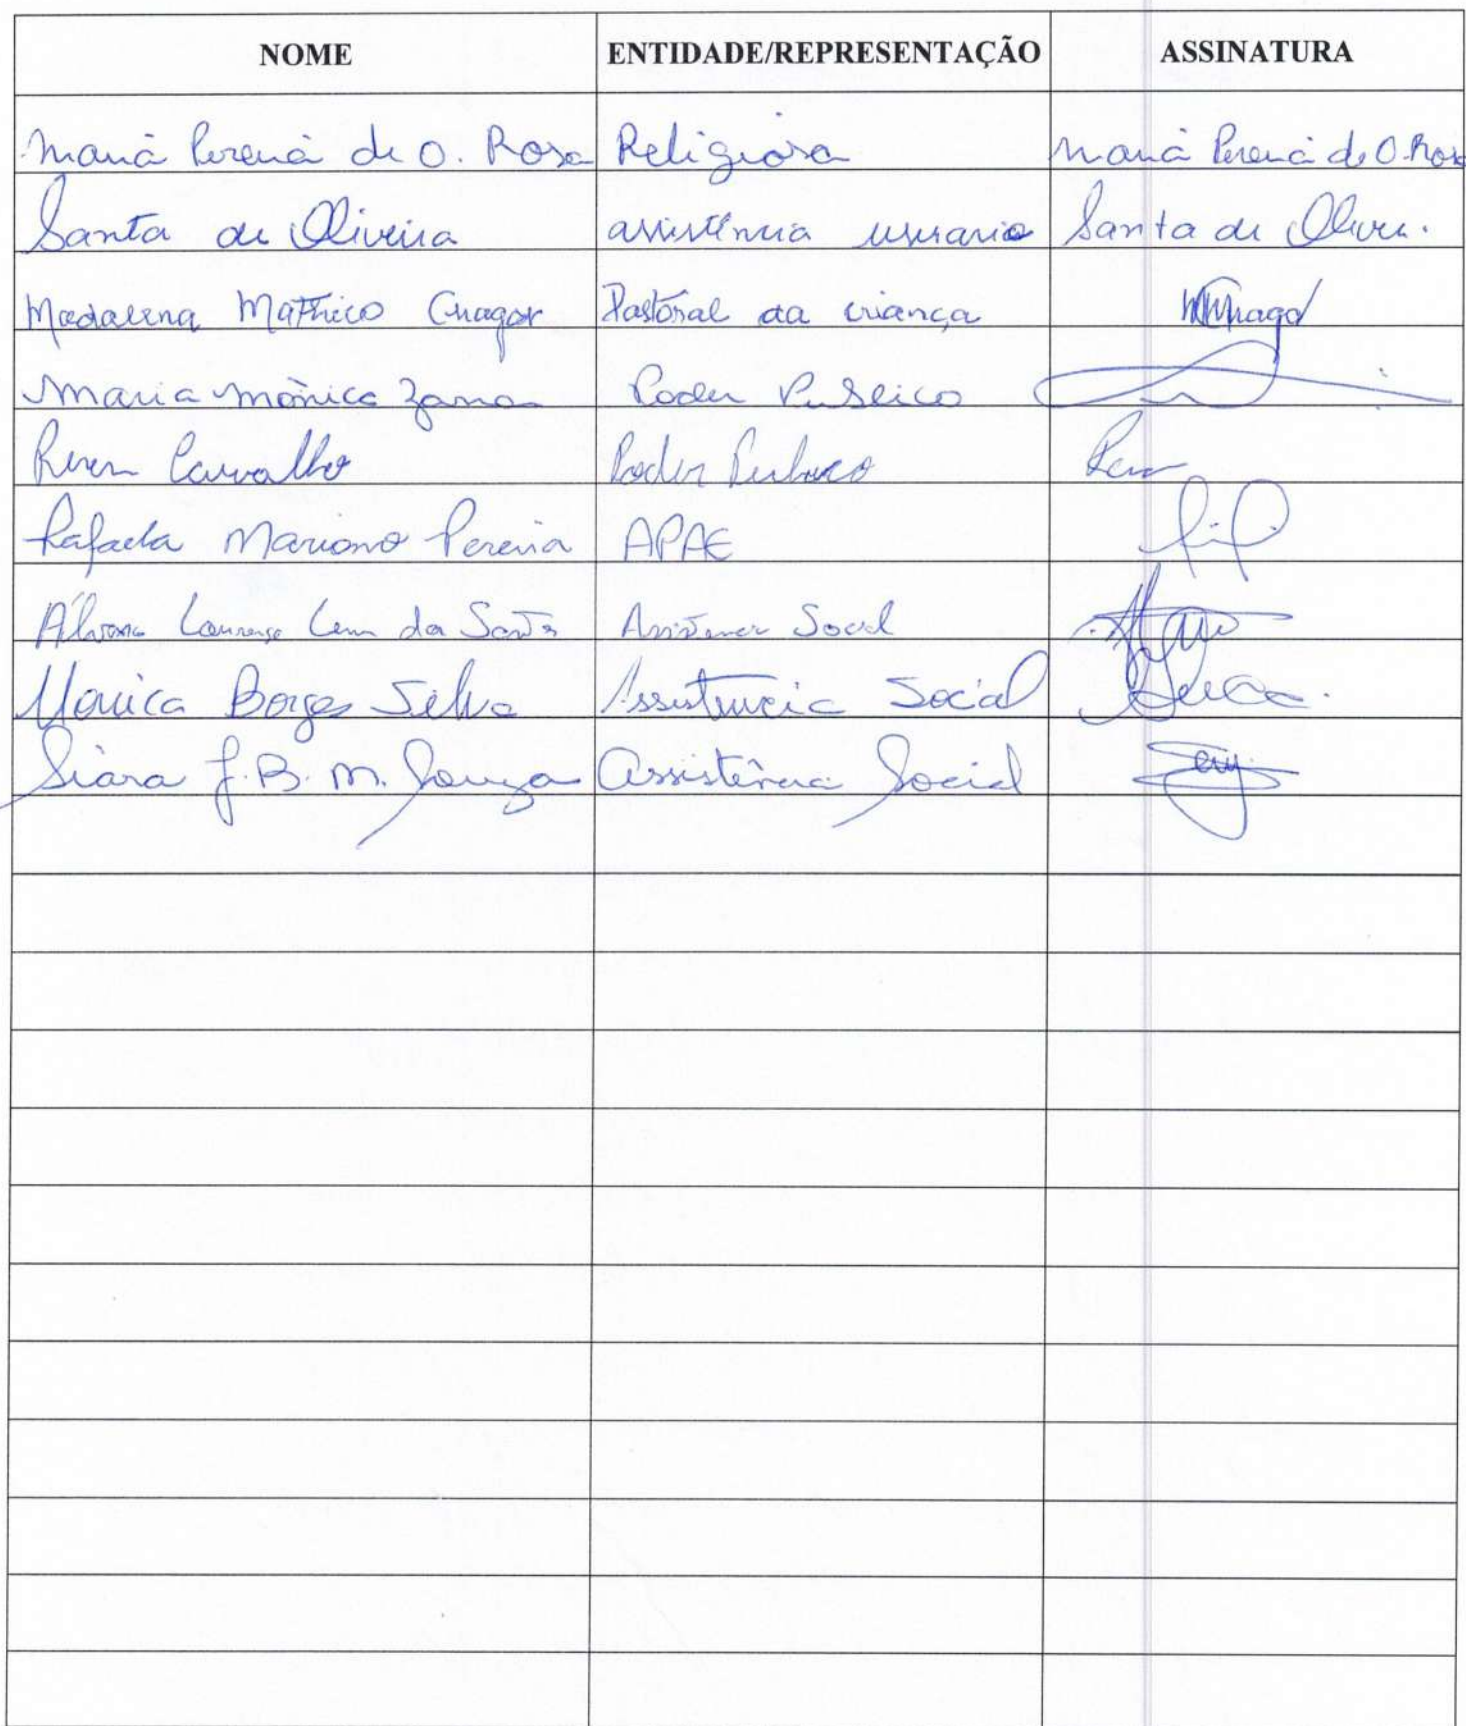 NOME ENTIDADE/REPRESENTAÇÃO ASSINATURA
Maria Pereira de O. Rosa Religiosa Maria Pereira de O. Rosa
Santa de Oliveira assistência usuario Santa de
Madalena Pastoral da criança
Maria Mônica Poder Publico
Carvalho Poder Publico
Rafaela Mariano Pereira APAE
Lourenço da Social
Monica Borges Silva Assistencia Social
Siara J.B. M. Souza Assistência Social